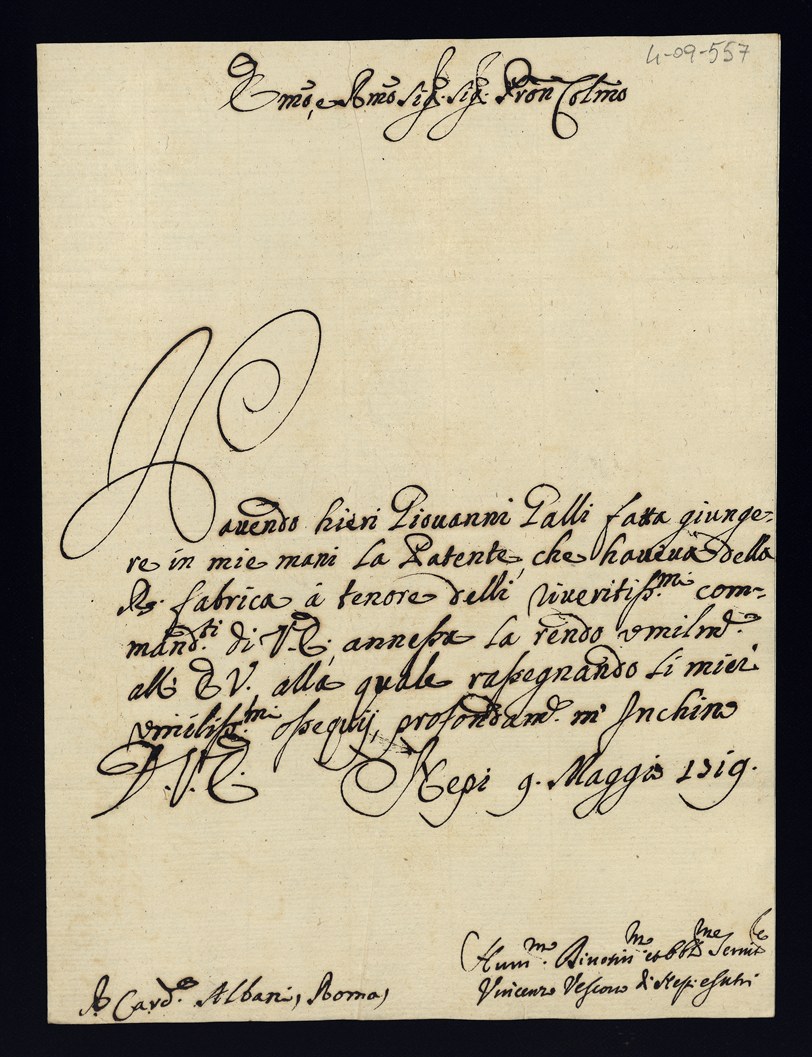 4-09-557
Emo, e Rmo Sig. Sig. Pron Colmo
Hauendo hieri Giouanni Galli fatta giunge=
re in mie mani la Patente, che haueua della
R. fabrica à tenore delli riueritiss.mi com=
mand.ti di V.E., annessa la rendo vmilmte.
all' E V. alla quale rassegnando li miei
vmiliss.mi ossequij, profondamte. m' Inchino
D.V.E. Nepi 9. Maggio 1719.
Hum.mo Diuotis.mo et obblmo Seruit.e
Vincenzo Vescouo di Nepi e Sutri
Card.e Albani, Roma,